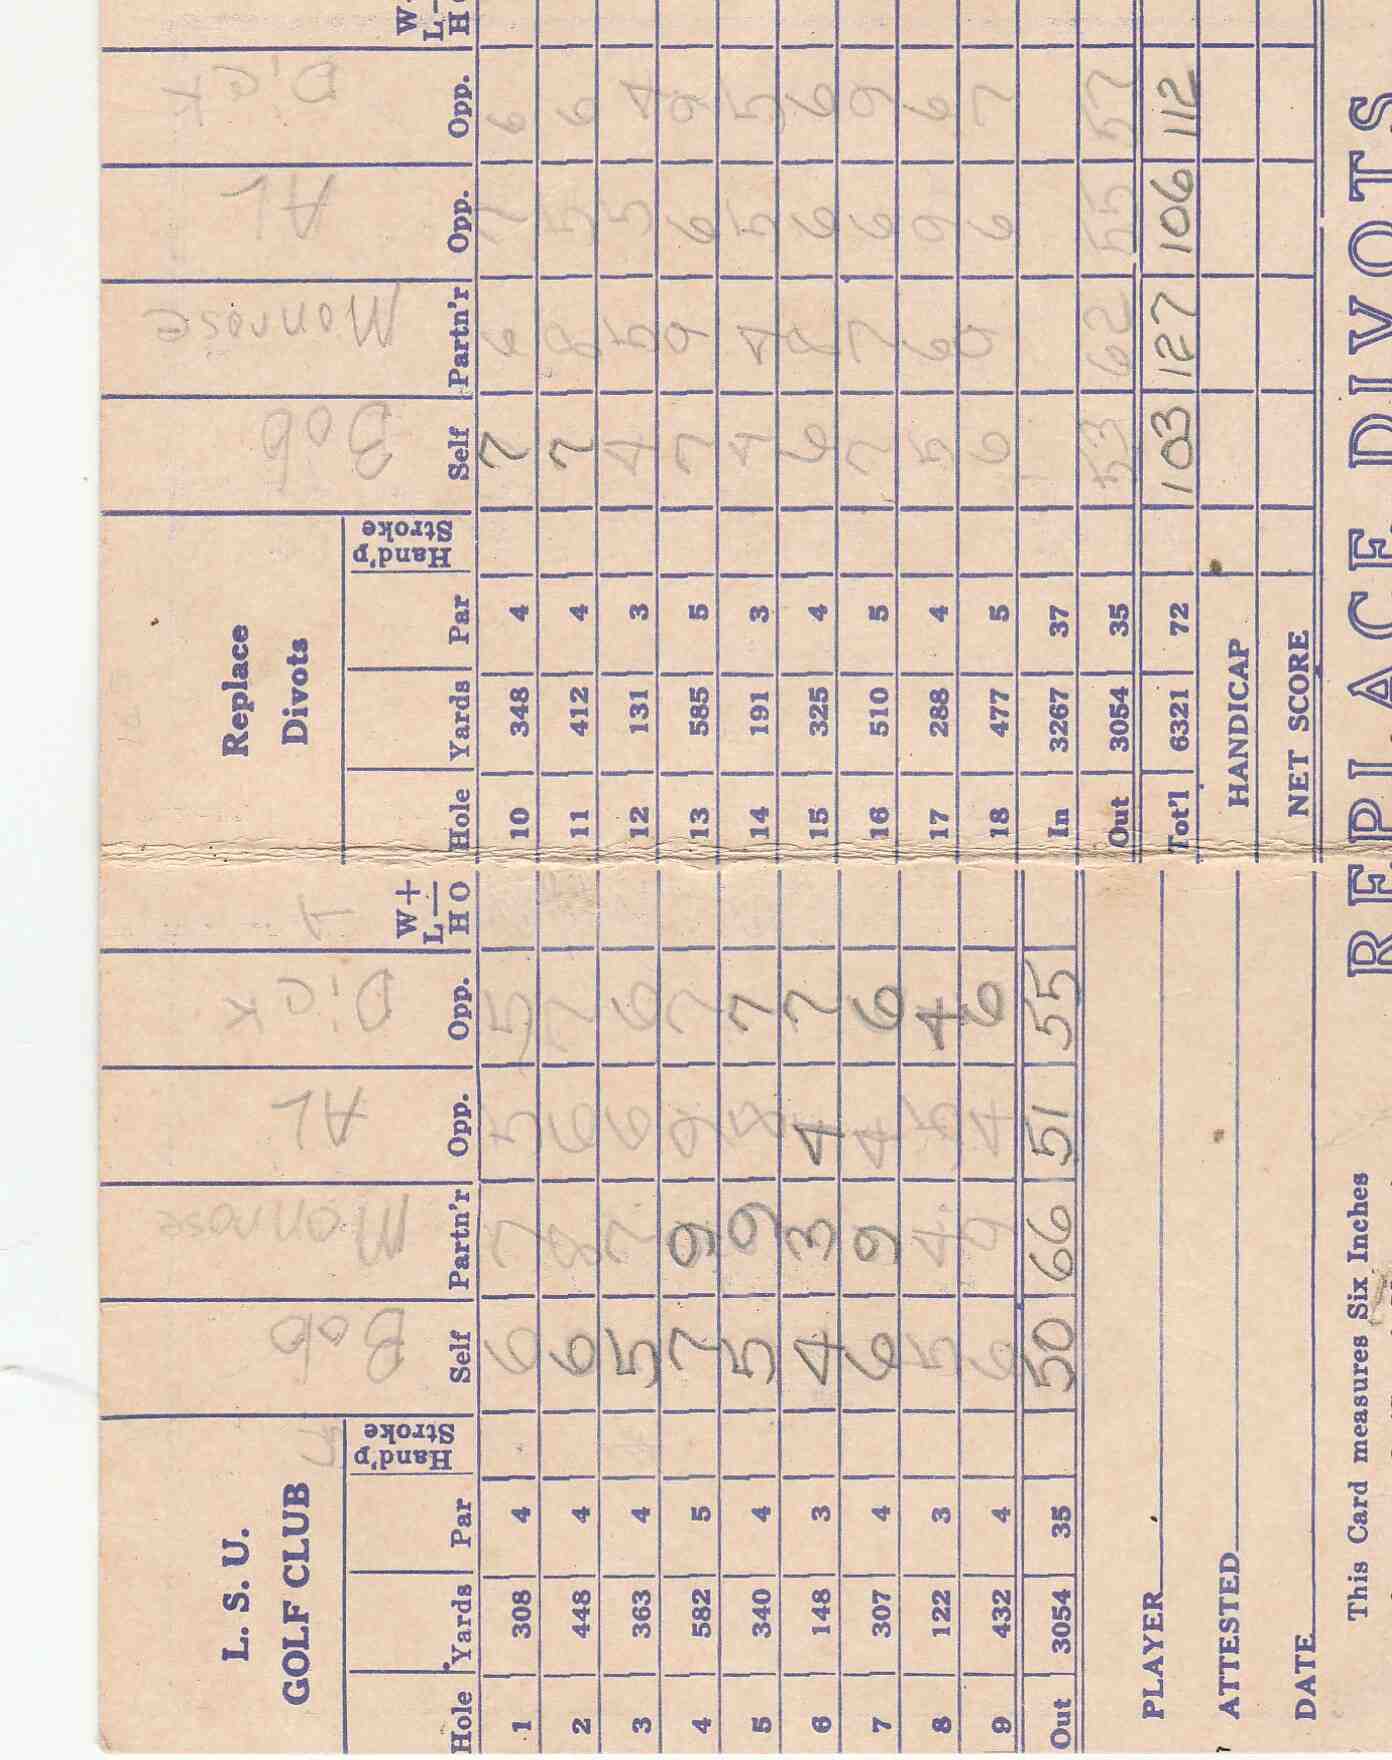 L. S. U.
GOLF CLUB
Bob Monrose AL Dick
Hole Yards Par Hand'p Stroke Self Partn'r Opp. Opp. W+ L— H O
1 308 4 6 7 5 5
2 448 4 6 8 6 7
3 363 4 5 7 6 6
4 582 5 7 9 9 7
5 340 4 5 9 8 7
6 148 3 4 3 4 7
7 307 4 6 9 4 6
8 122 3 5 4 5 4
9 432 4 6 9 4 6
Out 3054 35 50 66 51 55
PLAYER
ATTESTED
DATE
This Card measures Six Inches
Replace
Divots
Bob Monrose AL Dick
Hole Yards Par Hand'p Stroke Self Partn'r Opp. Opp. W L H
10 348 4 7 6 7 6
11 412 4 7 8 5 6
12 131 3 4 5 5 4
13 585 5 7 9 6 9
14 191 3 4 4 5 5
15 325 4 6 8 6 6
16 510 5 7 7 6 9
17 288 4 5 6 9 6
18 477 5 6 9 6 7
In 3267 37
Out 3054 35 53 62 55 57
Tot'l 6321 72 103 127 106 112
HANDICAP
NET SCORE
REPLACE DIVOTS